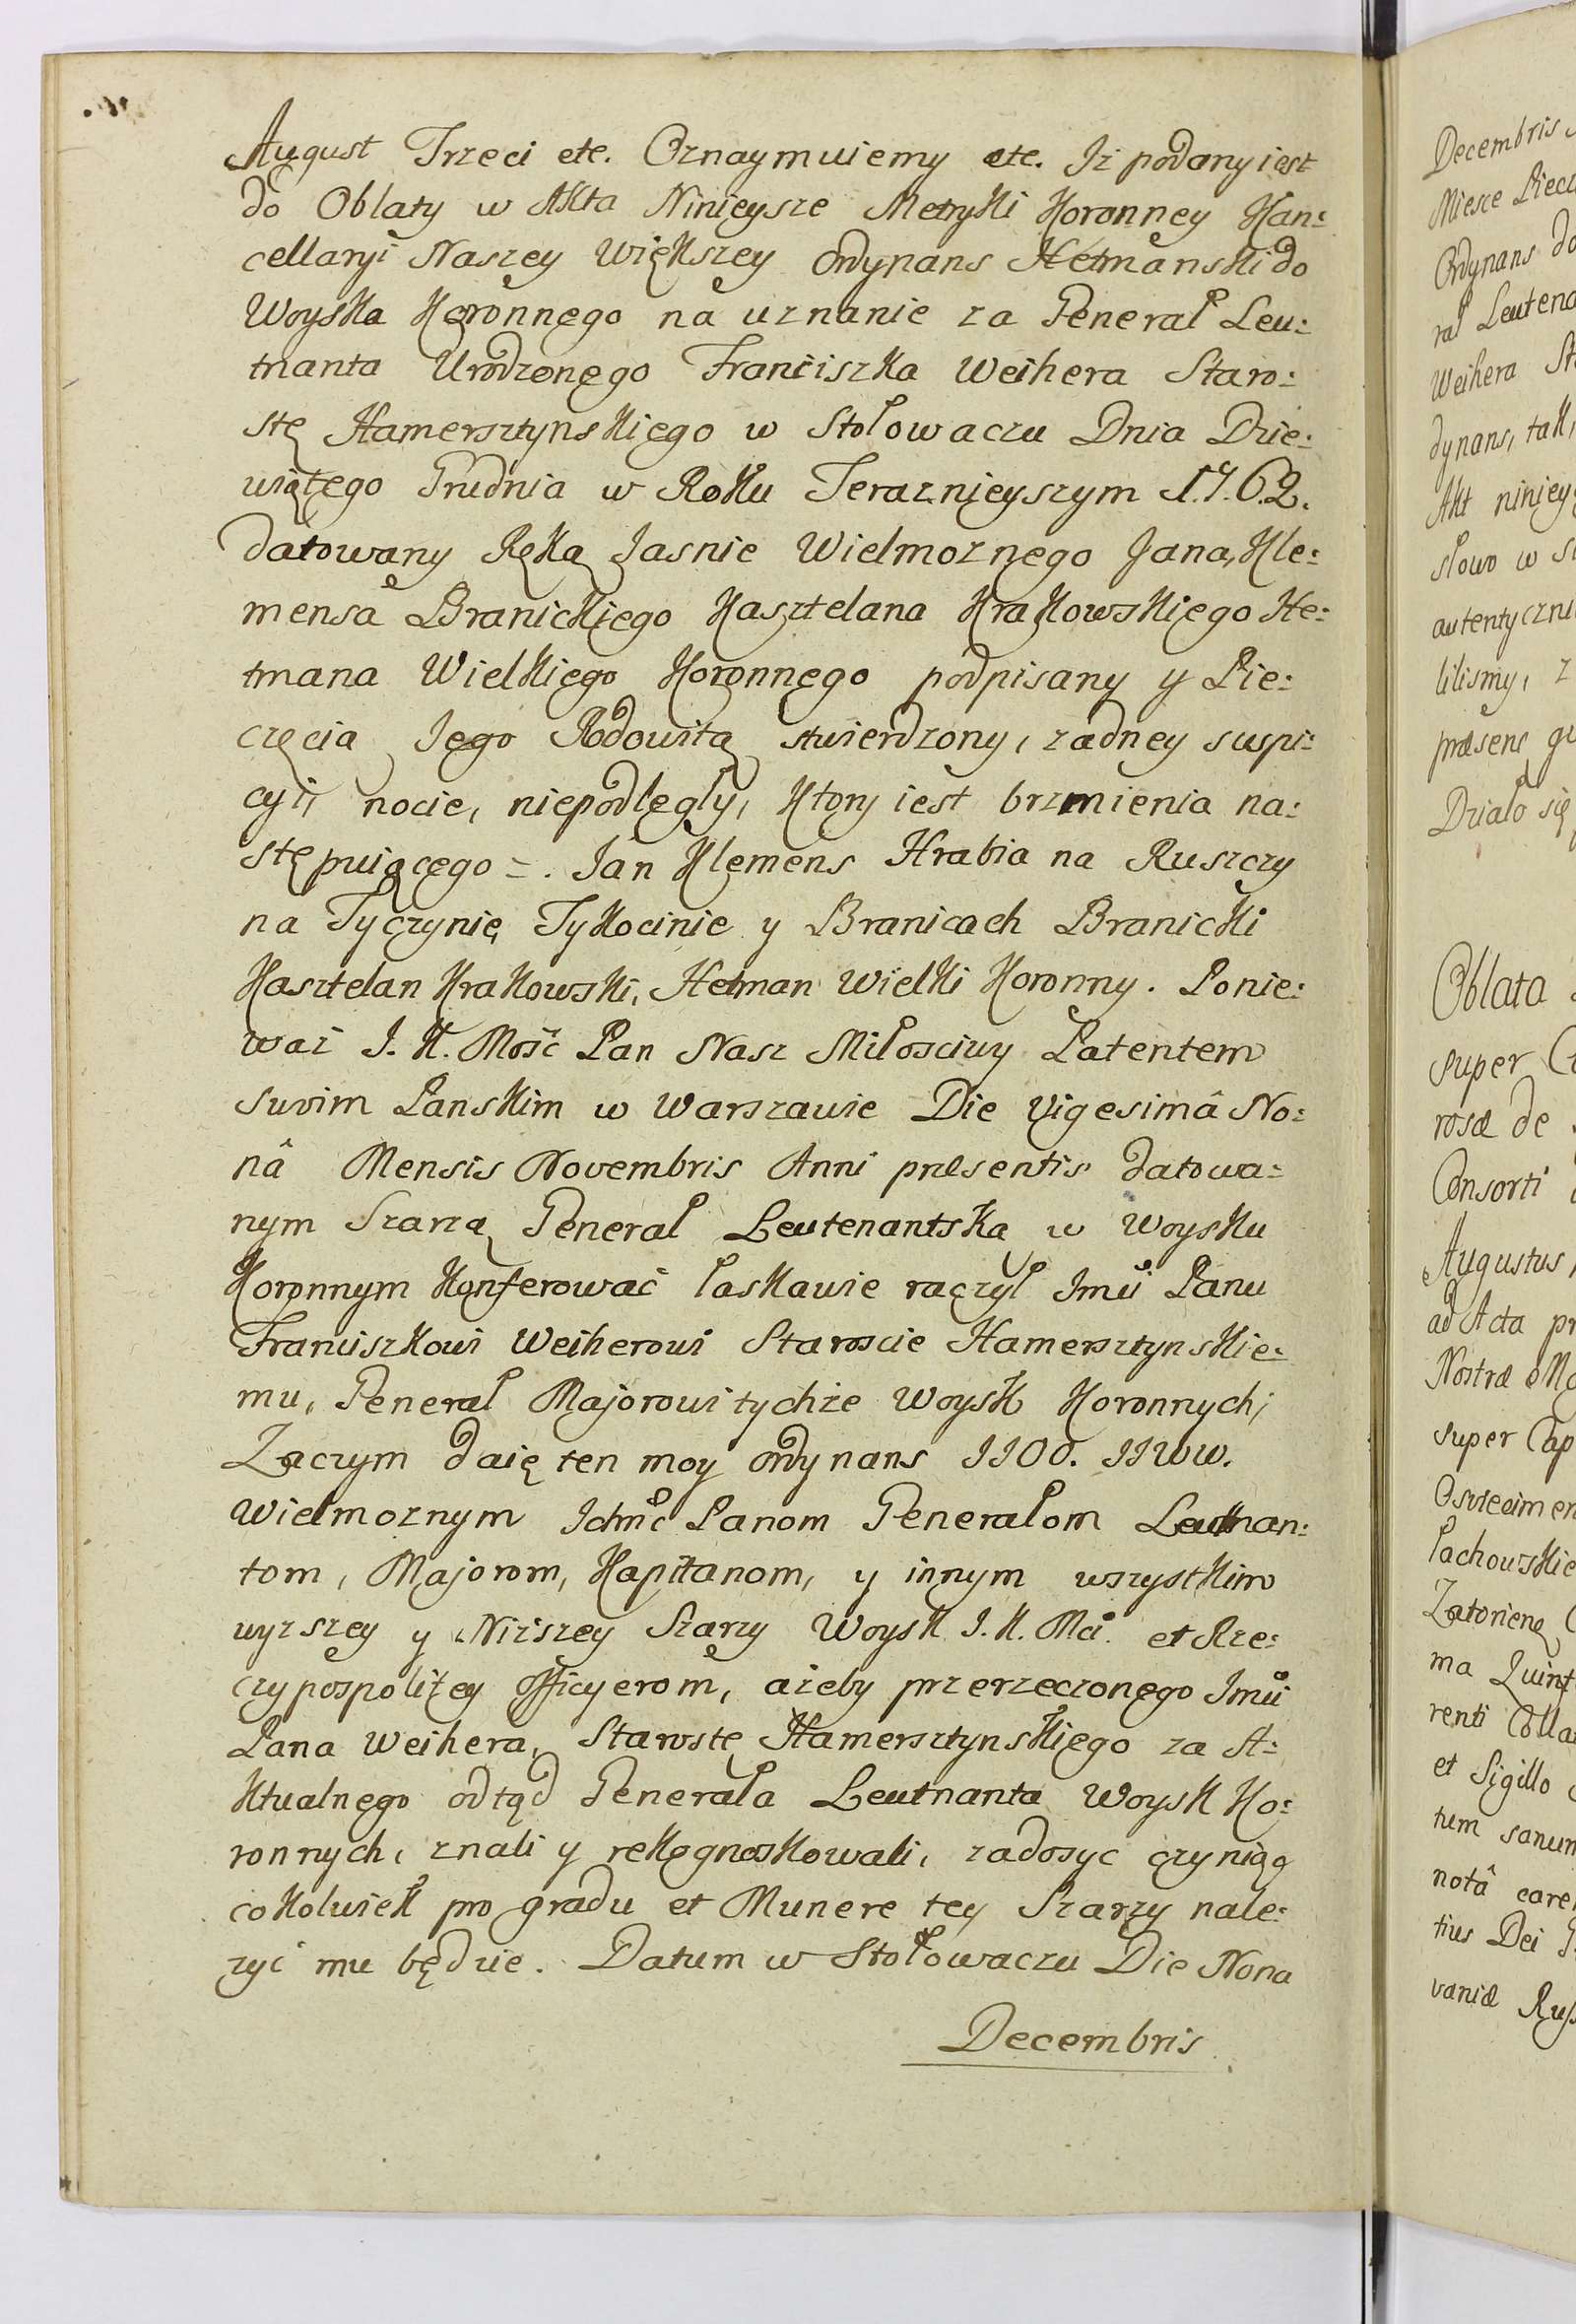 August Trzeci etc. Oznaymuiemy etc. Iż podany iest
do Oblaty w Akta Ninieysze Metryki Koronney Kan:
cellaryi Naszey Większey Ordynans Hetmanski do
Woyska Koronnego na uznanie za General Leu:
tnanta Urodzonego Franciszka Weihera Staro:
stę Hamersztynskiego w Stołowaczu Dnia Dzie:
wiątego Grudnia w Roku Teraznieyszym 1762.
datowany Ręką Jasnie Wielmoznego Jana Kle:
mensa Branickiego Kasztelana Krakowskiego He:
tmana Wielkiego Koronnego podpisany y Pie:
częcią Jego Rodowitą stwierdzony, zadney suspi:
cyi, nocie, niepodległy, Ktory iest brzmienia na:
stępuiącego =. Jan Klemens Hrabia na Ruszczy
na Tyczynie Tykocinie y Branicach Branicki
Kasztelan Krakowski, Hetman Wielki Koronny. Ponie:
waż J. K. Mość Pan Nasz Miłosciwy Patentem
swoim Panskim w Warszawie Die Vigesimâ No:
nâ Mensis Novembris Anni præsentis datowa:
nym Szarzą Generał Leutenantską w Woysku
Koronnym Konferować łaskawie raczył Jmū Panu
Franciszkowi Weiherowi Staroscie Hamersztynskie:
mu, Generał Majorowi tychże Woysk Koronnych;
Zaczym daię ten moy ordynans JJOO. JJWW.
Wielmoznym Ichmć Panom Generałom Leutnan:
tom, Majorom, Kapitanom, y innym wszystkim
wyzszey y Niższey Szarzy Woysk J. K. Mci et Rze:
czypospolitey officyerom, ażeby przerzeczonego Jmū
Pana Weihera, Starostę Hamersztynskiego za A:
ktualnego odtąd Generała Leutnanta Woysk Ko:
ronnych, znali y rekognoskowali, zadosyc czyniąc
cokolwiek pro gradu et Munere tey Szarzy nale:
żyć mu będzie. Datum w Stołowaczu Die Nona
Decembris
Decembris
Miesce Piecz
Ordynans do
rał Leutena
Weihera St
dynans, tak,
Akt niniey
słowo w sł
autentyczni
lilismy, z
præsens gr
Działo się
Oblata
super C
rosæ de
Consorti
Augustus
ad Acta pr
Nostræ M
super Cap
Osviecimen
Pachowskie
Zatoriens
ma Quint
renti Colla
et Sigillo
tum sanum
notâ care
tius Dei
vaniæ Russ